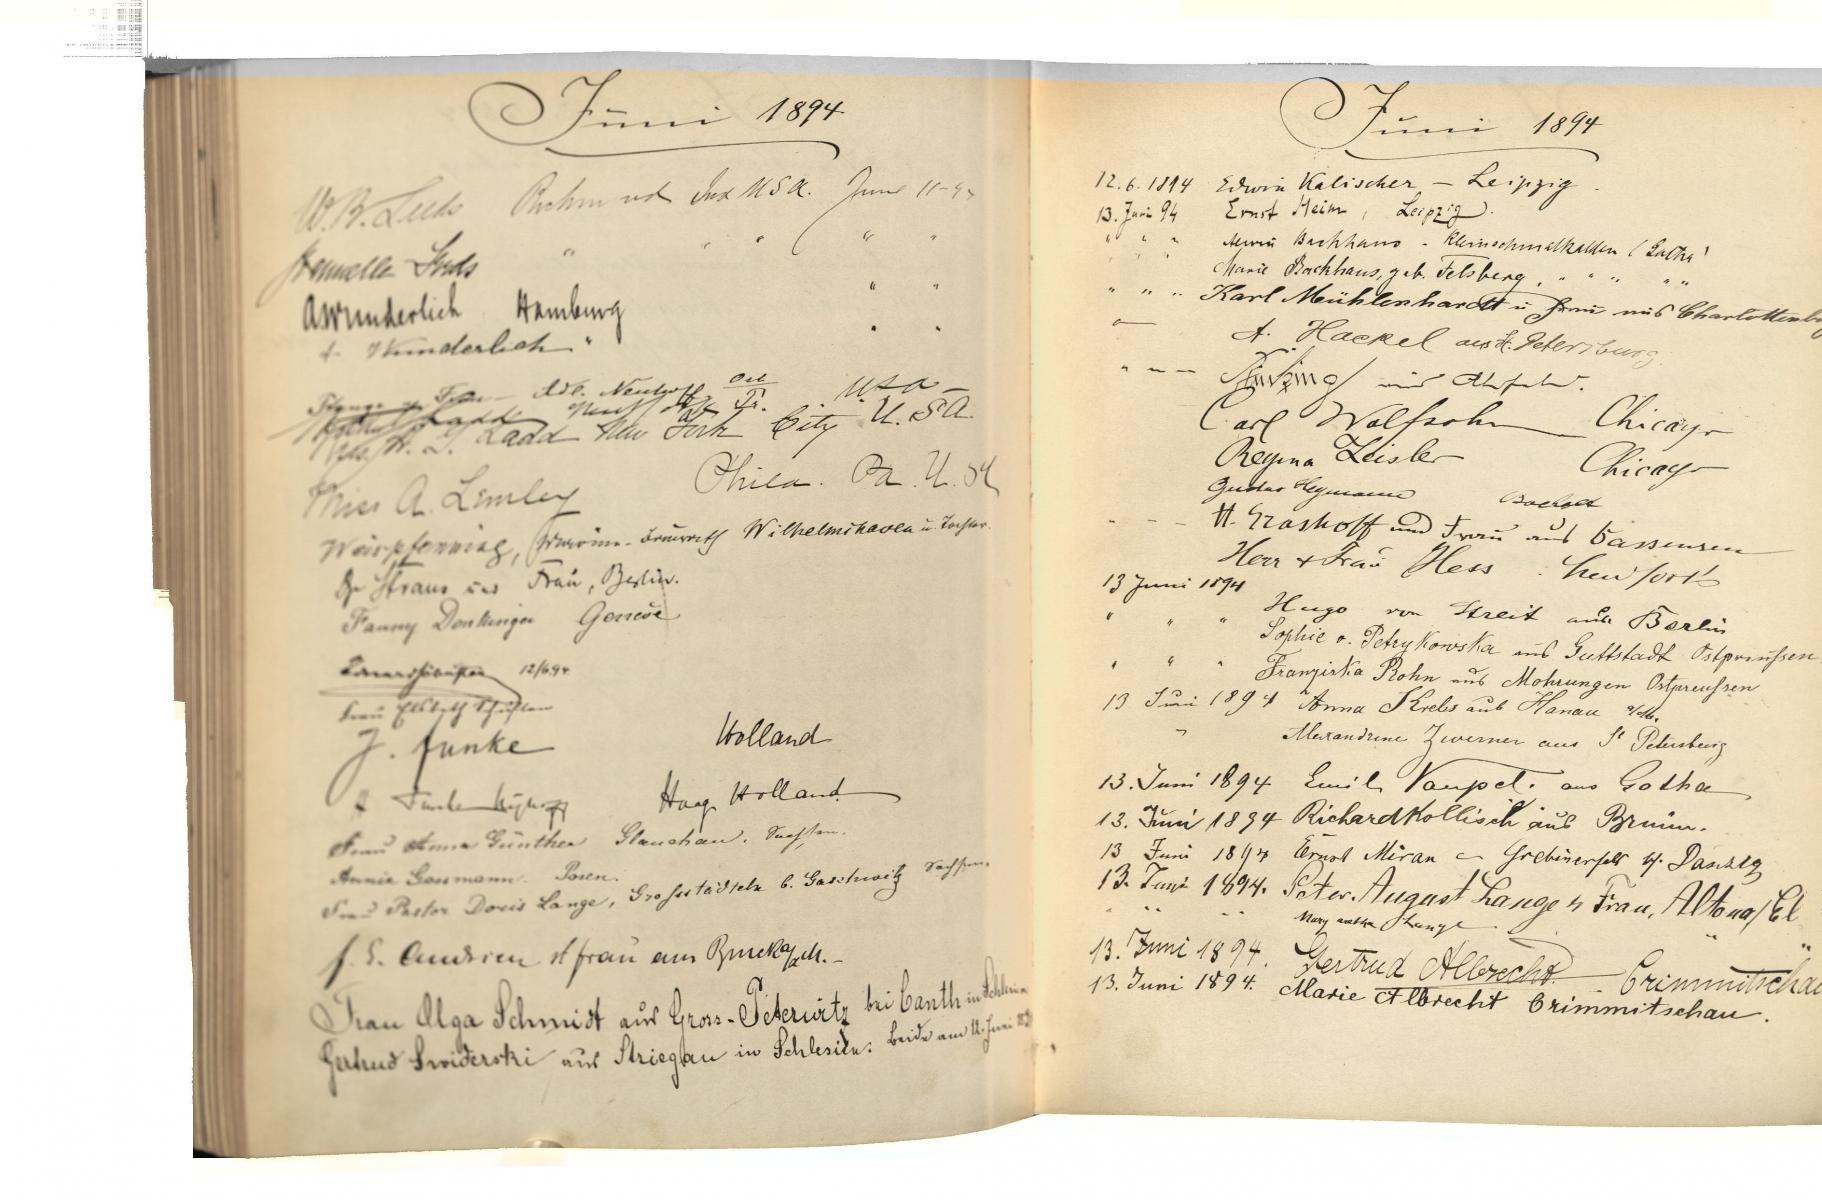 Juni 1894
W. B. Leeds Richmond Ind USA. June 11-94
" " " " "
AWunderlich Hamburg " "
Wunderlich " " "
Frau Adl. Neuhoff Ost Pr.
Ladd USA
W. L. Ladd New York City U.S.A.
Miss A. Lemley Phila. Pa. U.S.A
Weispfenning, Marine-Baurath Wilhelmshaven u. Tochter.
Straus und Frau, Berlin.
Fanny Genève
12/6 94
Frau
J. Funke Holland
Haag Holland
Frau Anna Günther Glauchau. Sachsen.
Annie Gossmann. Posen.
Frau Pastor Doris Lange, Grossstädteln b. Gaschwitz Sachsen.
frau aus Bruck a/M.
Frau Olga Schmidt aus Gross-Peterwitz bei Canth in Schlesien
Gertrud Swiderski aus Striegau in Schlesien. Beide am 12. Juni
Juni 1894
12.6.1894 Edwin Kalischer - Leipzig.
13. Juni 94 Ernst Heim, Leipzig.
" " " Backhaus - Kleinschmalkalden (Gotha)
" " " Marie Backhaus, geb. Felsberg, " " " "
" " " Karl Mühlenhardt u Frau aus Charlottenburg
A. Hackel aus St. Petersburg.
" - - aus
Carl Wolfsohn Chicago
Regina Zeisler Chicago
Gustav Heymann Bocholt
- - - H. Grashoff und Frau aus Gassensen
Herr & Frau Hess. New York
13 Juni 1894
" " " Hugo von Streit aus Berlin
Sophie v. Petrykowska aus Guttstadt Ostpreußen
" " " Franziska Rohn aus Mohrungen Ostpreußen
13 Juni 1894 Anna Krebs aus Hanau a/M.
" Alexandrine Zwerner aus St Petersburg
13. Juni 1894 Emil Vaupel. aus Gotha
13. Juni 1894 Richard Kollisch aus Brünn.
13 Juni 1894 Ernst Miran - b/. Danzig
13. Juni 1894. Peter August Lange & Frau, Altona/El
" " " Mary Lange " "
13. Juni 1894. Gertrud Albrecht - Crimmitschau
13. Juni 1894. Marie Albrecht Crimmitschau.